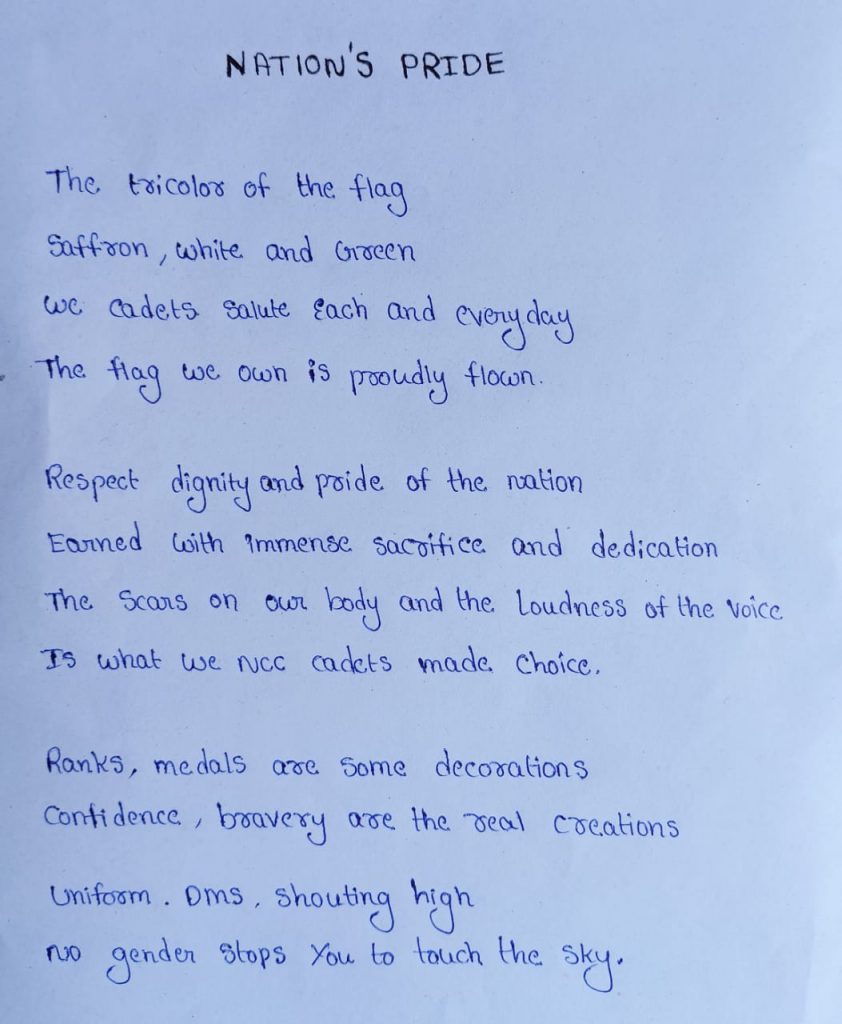 NATION'S PRIDE
The tricolor of the flag
Saffron, white and Green
we cadets salute Each and everyday
The flag we own is proudly flown.
Respect dignity and pride of the nation
Earned with immense sacrifice and dedication
The Scars on our body and the Loudness of the voice
Is what we NCC cadets made choice.
Ranks, medals are some decorations
Confidence, bravery are the real creations
Uniform. DMS, shouting high
No gender stops You to touch the sky.